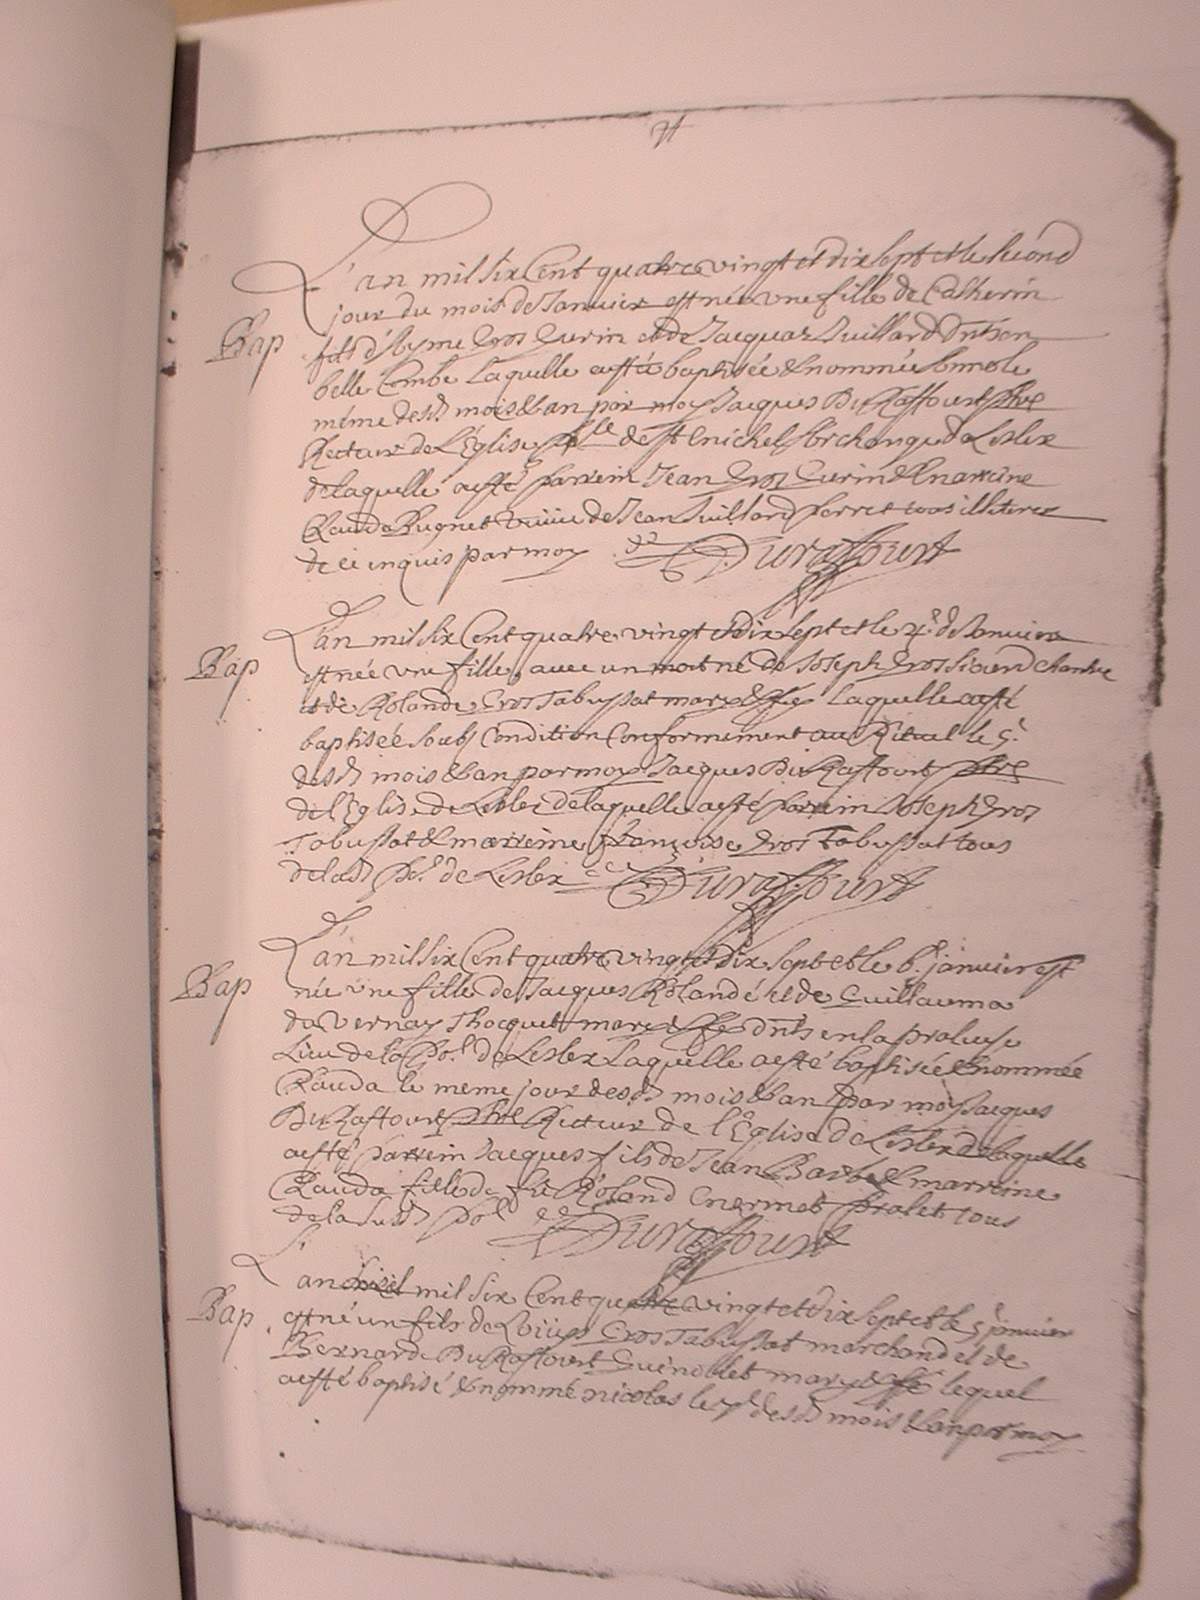 L'an mil six Cent quatre vingt et dix sept et le second
Bap
jour du mois de Janvier est née une fille de Catherin
fils d'Ayme Gros Gurin et de Jacqua Juillard
belle Combe Laquelle a esté baptisée & nommée le
même desd mois & an par moy Jacques DuRaffourt pbre
Recteur de L'Église de St Michel Archange de Leslex
de laquelle a esté parrein Jean Gros Gurin & marreine
Clauda Bugnet de Jean Juillard Perret tous illiteres
de ce inquis par moy Duraffourt
L'an mil six Cent quatre vingt et dix sept et le 4e de Janvier
Bap
est née une fille avec un mort né de Joseph Gros
et de Rolande Gros Tabussat maryes Laquelle a esté
baptisée soubs Condition Conformement au Rituel le 5e
desd mois & an par moy Jacques DuRaffourt pbre
de l'Église de Leslex de laquelle a esté parrein Joseph Gros
Tabussat & marreine françoise Gros Tabussat tous
de lad de Leslex Duraffourt
L'an mil six Cent quatre vingt et dix sept et le 6e janvier est
Bap
née une fille de Jacques Rolandé et de Guillauma
du Vernay en la
Lieu de la de Leslex Laquelle a esté baptisée & nommée
Clauda le meme jour desd mois & an par moy Jacques
DuRaffourt pbre Recteur de l'Église de Leslex de laquelle
a esté parrein Jacques fils de Jean Barbe & marreine
Clauda fille de Roland tous
de la susd Duraffourt
L'an mil six Cent quatre vingt et dix sept et le 5e janvier
Bap
est né un fils de Loüys Gros Tabussat marchand et de
Bernarde DuRaffourt maryes lequel
a esté baptisé & nommé nicolas le 7e desd mois & an par moy